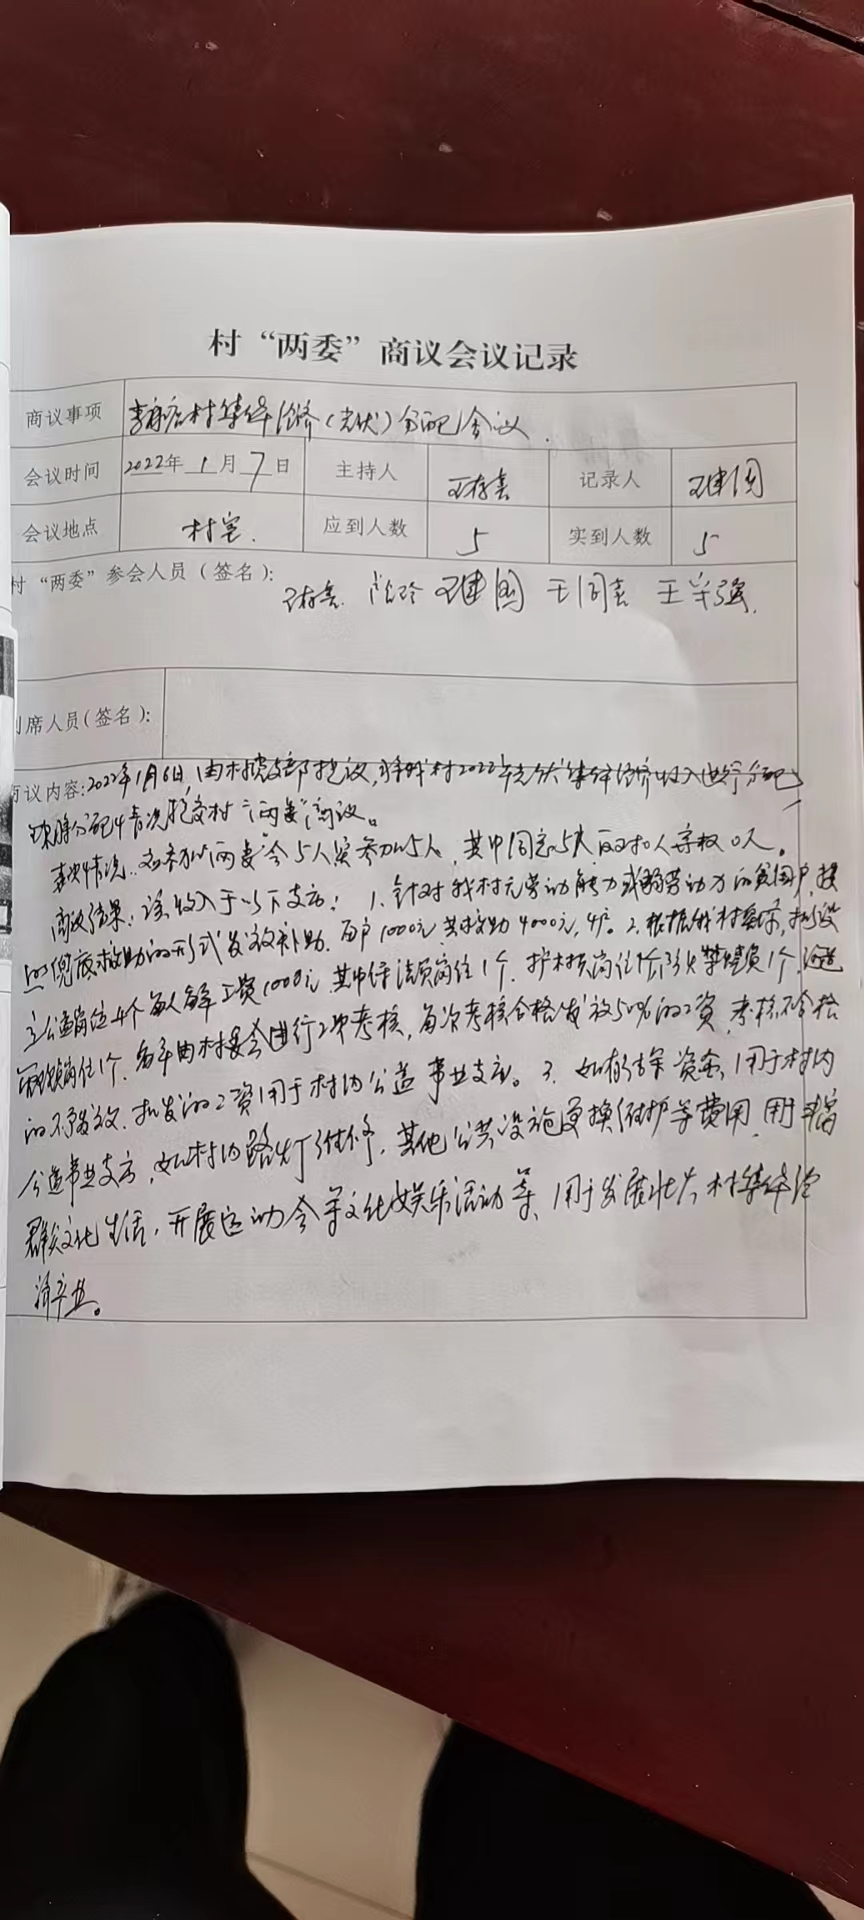 村“两委”商议会议记录
商议事项 李麻店村集体经济（光伏）分配会议.
会议时间 2022年1月7日 主持人 记录人 王建国
会议地点 村室. 应到人数 5 实到人数 5
村“两委”参会人员（签名）： 王建国 王同喜 王学强.
列席人员(签名)：
商议内容：2022年1月6日，由村党支部提议，将我村2022年光伏集体经济收入进行分配，
现将分配情况提交村“两委”商议。
表决情况：应参加“两委”会5人实参加5人，其中同意5人反对0人弃权0人。
商议结果：该收入于以下支出：1.针对我村无劳动能力或弱劳动力的贫困户，按
照保底救助的形式发放补助.每户1000元共救助4000元，4户。2.根据我村实际，拟设
立公益岗位4个每人每年工资1000元.其中保洁员岗位1个.护林员岗位1个，防火禁烧员1个，
岗位1个.每年由村委会进行2次考核，每次考核合格发放50%的工资，考核不合格
的不予发放.扣发的工资用于村内公益事业支出。3.如有结余资金，用于村内
公益事业支出，如村内路灯维修，其他公共设施更换维护等费用.用于丰富
群众文化生活，开展运动会等文化娱乐活动等、用于发展壮大村集体经
济产业。